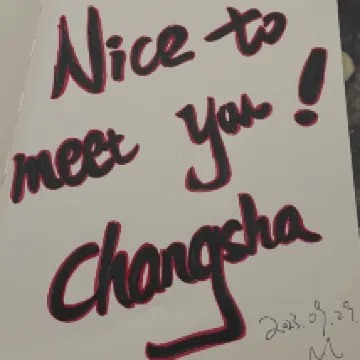 Nice to
meet you!
Changsha
2023.09.09
M